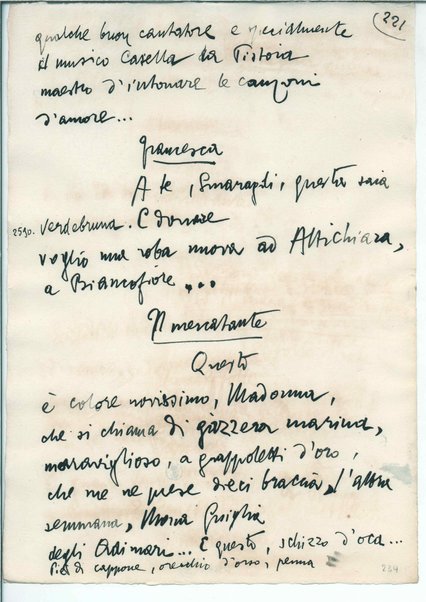 221
qualche buon cantatore e specialmente
il musico Casella da Pistoia
maestro d'intonare le canzoni
d'amore...
Francesca
A te, Smaragdi, questa saia
2590. verdebruna. E donare
voglio una roba nuova ad Altichiara,
a Biancofiore...
Il mercatante
Questo
è colore novissimo, Madonna,
che si chiama di gàzzera marina,
maraviglioso, a grappoletti d'oro,
che me ne prese dieci braccia, l'altra
semmana, Mona Guiglia
degli Adimari... E questo, schizzo d'oca...
Piè di cappone, orecchio d'orso, penna
234